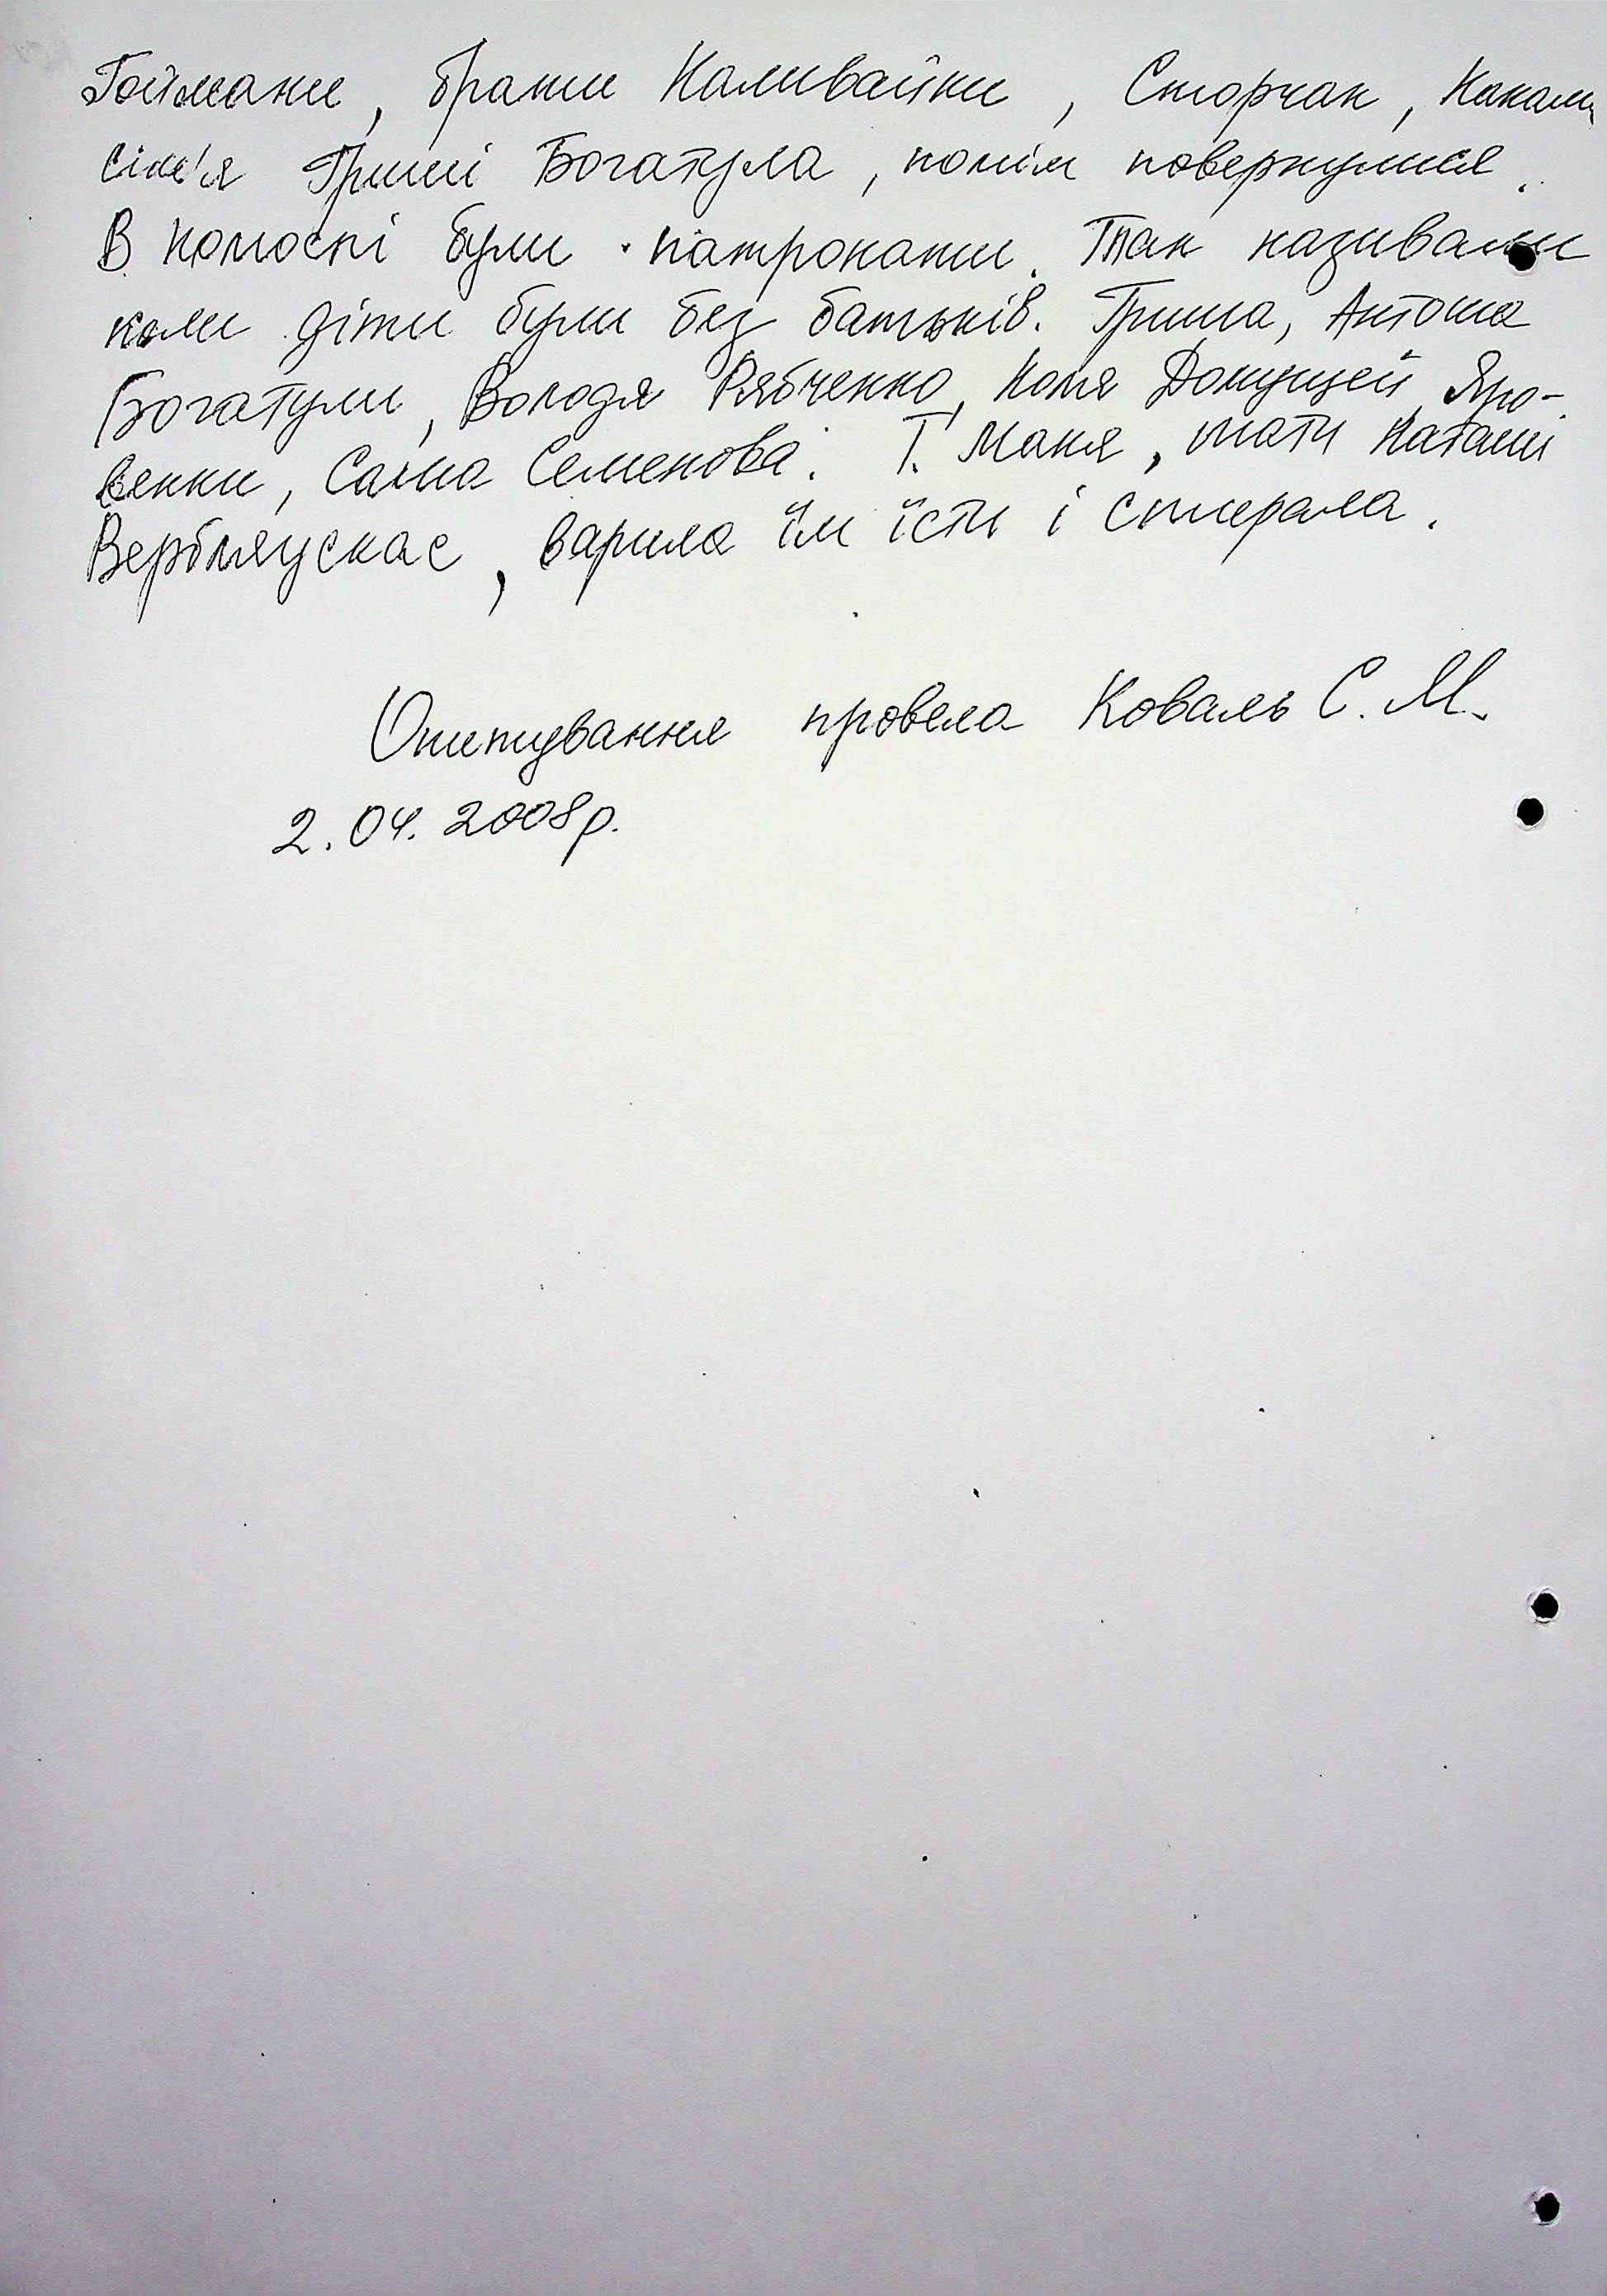 Гоймани, брати Наливайки, Сторчак,
сім'я Гриші Богатула, потім повернулися.
В колоспі були патронати. Так називали
коли діти були без батьків. Гриша, Антоша
Богатули, Володя Рябченко, Коля Яро-
венки, Саша Семенова. Т. Маня, мати Наташі
Вербляускас, варила їм їсти і стирала.
Опитування провела Коваль С. М.
2.04.2008р.